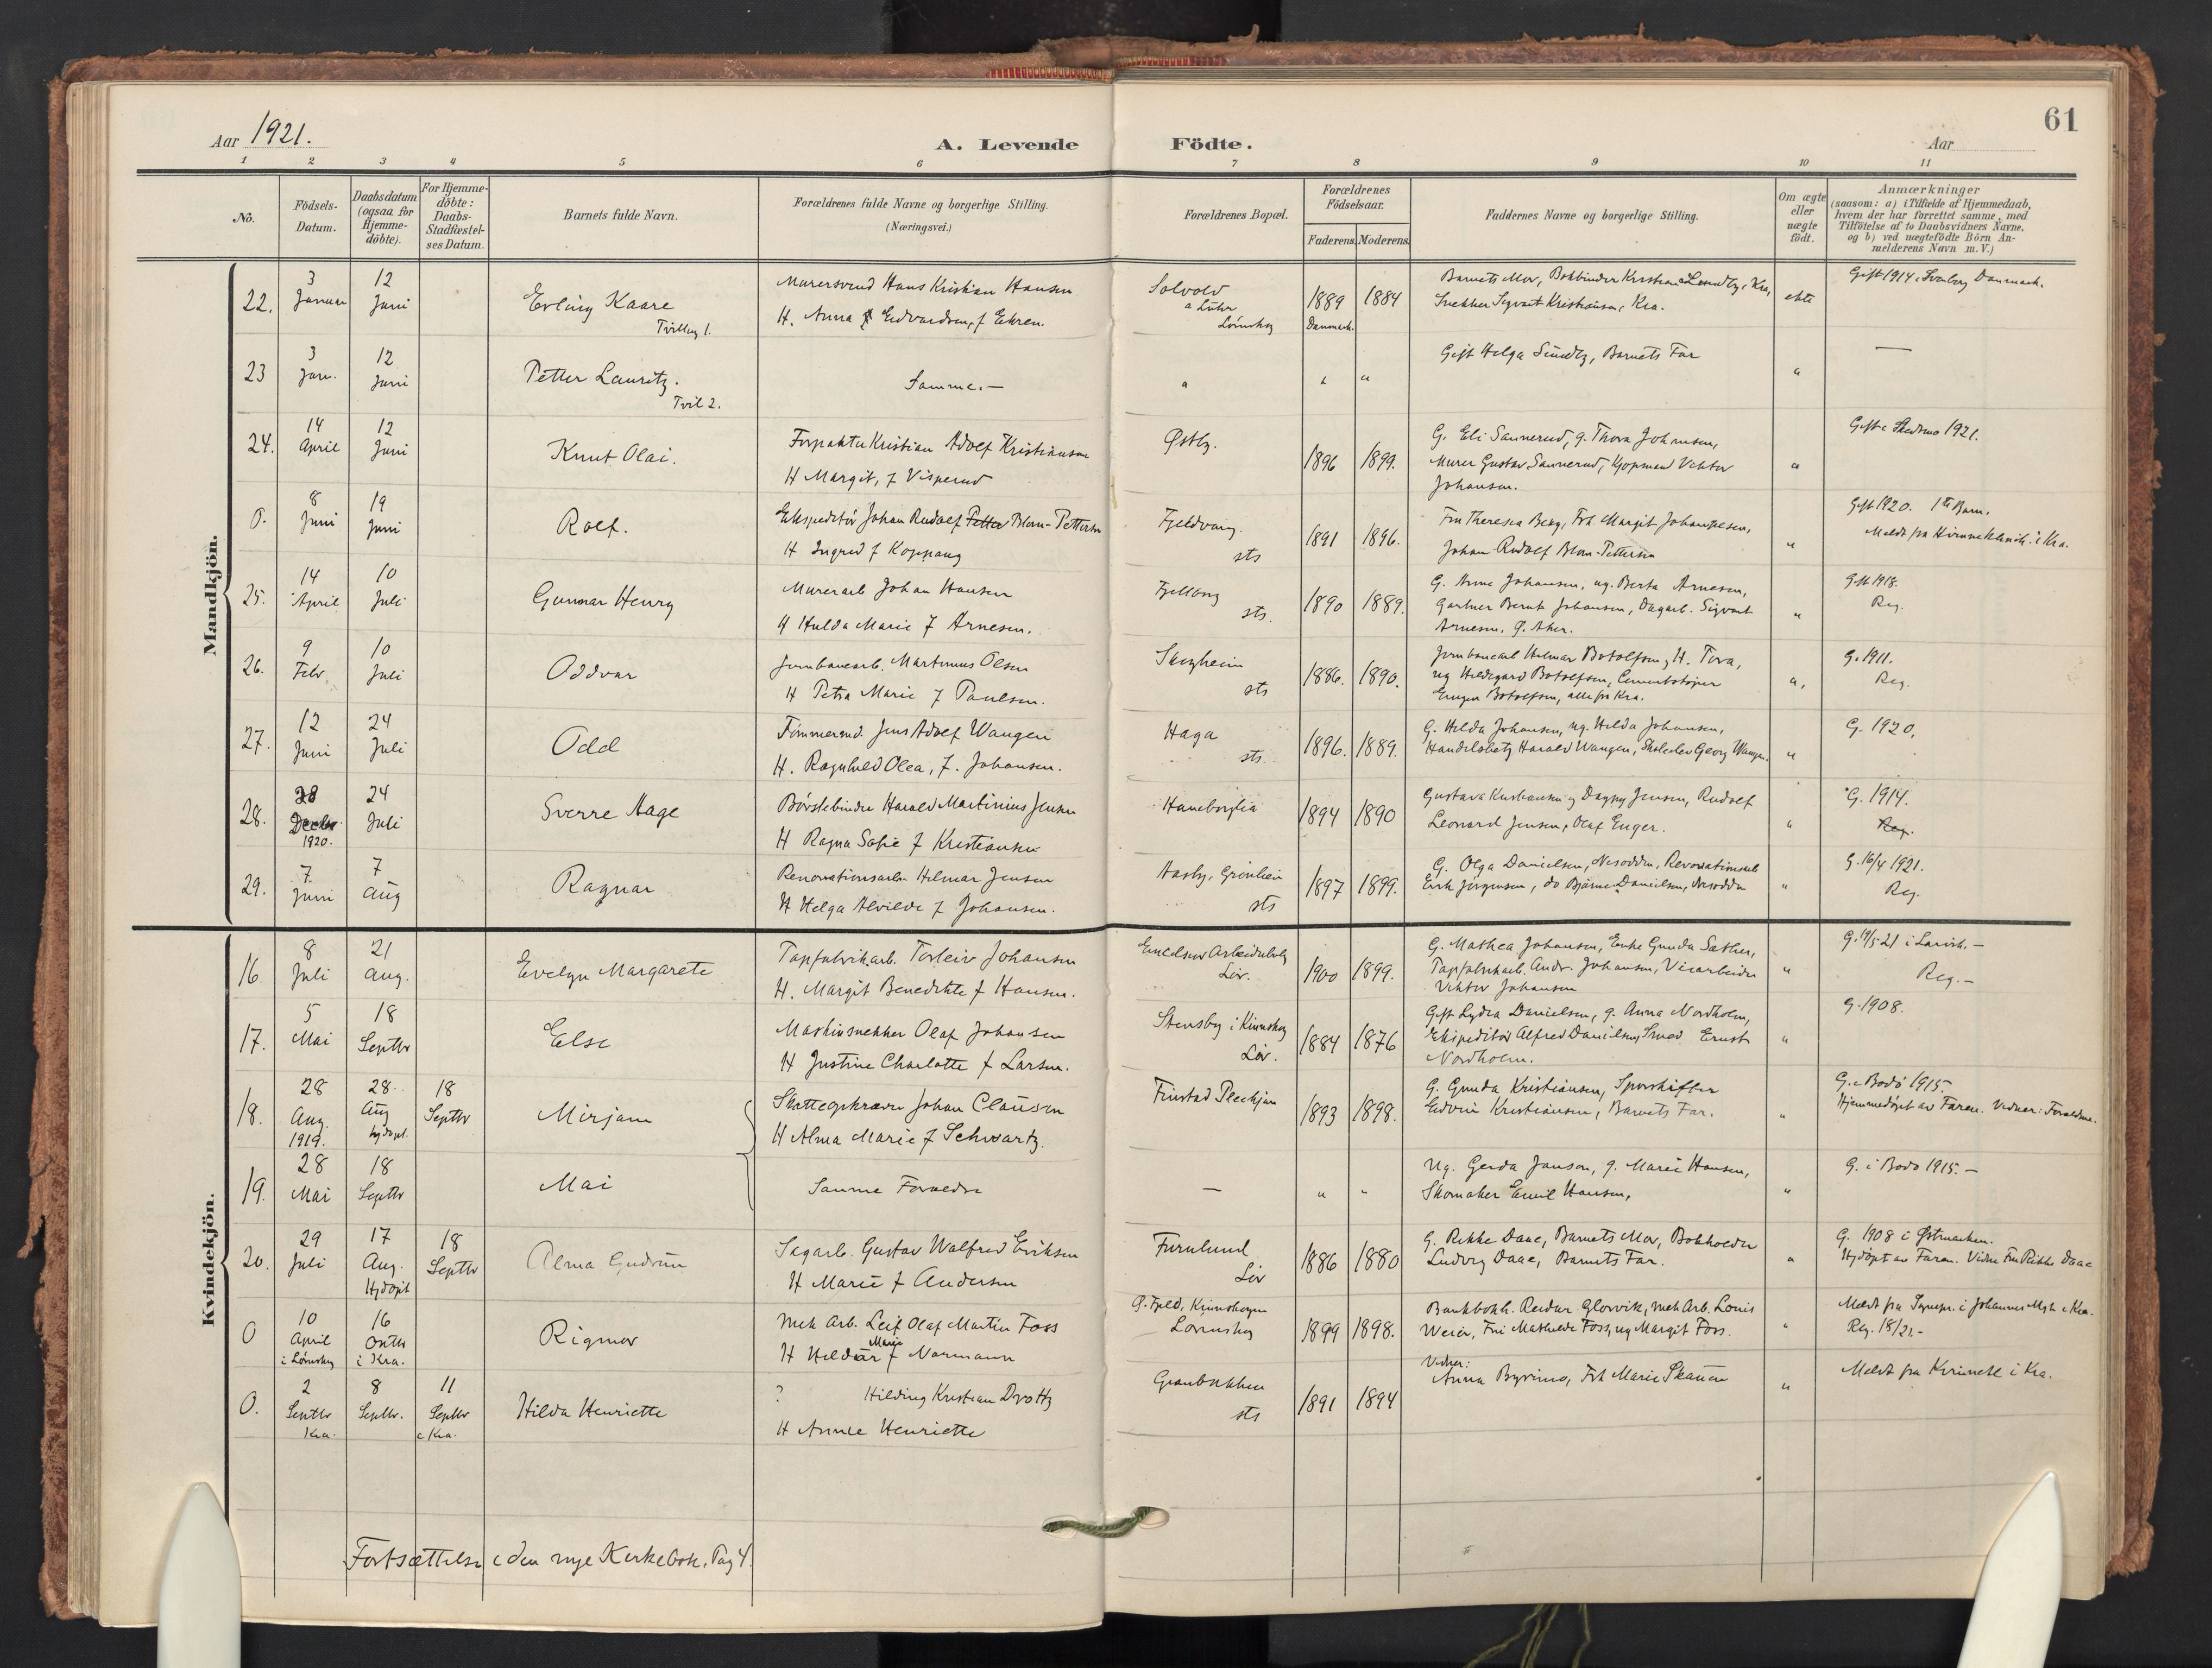 61
Aar 1921.
A. Levende Födte.
Aar
1 2 3 4 5 6 7 8 9 10 11
No.
Födsels-
Datum.
Daabsdatum
(ogsaa for
Hjemme-
döbte).
For Hjemme-
döbte:
Daabs-
Stadfæstel-
ses Datum.
Barnets fulde Navn.
Forældrenes fulde Navne og borgerlige Stilling.
(Næringsvei.)
Forældrenes Bopæl.
Forældrenes
Födselsaar.
Faderens. Moderens.
Faddernes Navne og borgerlige Stilling.
Om ægte
eller
uægte
födt.
Anmærkninger
(saasom: a) i Tilfælde af Hjemmedaab,
hvem der har forrettet samme, med
Tilföielse af to Daabsvidners Navne,
og b) ved uægtefödte Börn An-
melderens Navn m. V.)
Mandkjön.
22.
3
Januar
12
Juni
Erling Kaare
Tvilling 1.
Murersvend Hans Kristian Hansen
H. Anna Edvardsen, f Ekren.
Solvold
Lørnskog
1889
Danmark.
1884
Barnets Mor, Bokbinder Kristian Sundby, Kra,
Snekker Sigvart Kristiansen, Kra.
ekte
Gift 1914 i Svenborg Danmark.
23
3
Jan.
12
Juni
Petter Lauritz.
Tvil 2.
Samme. —
"
" "
Gift Helga Sundby, Barnets Far
"
—
24.
14
April
12
Juni
Knut Olai.
Forpakter Kristian Adolf Kristiansen
H Margit, f Visperud
Østby.
1896 1899.
G. Eli Sannerud, g. Thora Johansen,
Murer Gustav Sannerud, Kjøpmand Viktor
Johansen.
"
Gift i Skedsmo 1921.
0.
8
Juni
19
Juni
Rolf.
Ekspeditør Johan Rudolf Petter Blom-Pettersen
H Ingrid f Koppang
Fjeldvang
sts
1891 1896.
Fru Theresea Berg, Frk Margit Johannesen,
Johan Rudolf Blom-Pettersen
"
Gift 1920. 1te Barn.
Meldt fra Kvinneklinik. i Kra.
25.
14
April
10
Juli
Gunnar Henry
Murerarb Johan Hansen
H Hulda Marie f Arnesen.
sts.
1890 1889.
G. Anna Johansen, ug. Berta Arnesen,
Gartner Bernt Johansen, Dagarb. Sigvart
Arnesen, Ø. Aker.
"
Gift 1918.
Reg.
26.
9
Febr.
10
Juli
Oddvar
Jernbanearb. Martinus Olsen
H Petra Marie f Paulsen.
Skogheim
sts
1886. 1890.
Jernbanearb Hilmar Botolfsen, H. Tora,
ug Hildegard Botolfsen, Cementstøper
Eugen Botolfsen, alle fra Kra.
"
G. 1911.
Reg.
27.
12
Juni
24
Juli
Odd
Tømmermd. Jens Adolf Wangen
H. Ragnhild Olea, f. Johansen.
Haga
sts
1896. 1889.
G. Hilda Johansen, ug. Hilda Johansen,
Handelsbetj Harald Wangen, Skoleelev Georg Wangen.
"
G. 1920.
28.
28
Decbr.
1920.
24
Juli
Sverre Aage
Børstebinder Harald Martinius Jensen
H Ragna Sofie f Kristiansen
Haneborglia
1894 1890
Gustava Kristiansen, Dagny Jensen, Rudolf
Leonard Jensen, Olaf Enger.
"
G. 1914.
Reg.
29.
7
Juni
7
Aug
Ragnar
Renovationsarb. Hilmar Jensen
H Helga Alvilde f Johansen.
Aasby, Grønlien
sts
1897 1899.
G. Olga Danielsen, Nesodden, Renovationsarb
Erik Jørgensen, do Bjarne Danielsen, Nesodden
"
G. 16/4 1921.
Reg.
Kvindekjön.
16.
8
Juli
21
Aug.
Evelyn Margarete
Tapfabrikarb. Torleiv Johansen
H. Margit Benedikte f Hansen.
Lør.
1900 1899.
G. Mathea Johansen, Enke Gunda Sæther,
Tapfabrikarb. Andr. Johansen, Visearbeider
Viktor Johansen
"
G. 14/5 21 i Larvik. —
Reg. —
17.
5
Mai
18
Septbr
Else
Maskinsnekker Olaf Johansen
H Justine Charlotte f Larsen.
Stensby i Kinnskog
Lør.
1884 1876
Gift Lydia Danielsen, g. Anna Nordholm,
Ekspeditør Alfred Danielsen, Smed Ernst
Nordholm.
"
G. 1908.
18.
28
Aug.
1919.
28.
Aug
hjdøpt.
18
Septbr
Mirjam
Skatteopkræver Johan Clausen
H Alma Marie f Schwartz.
Finstad Pleiehjem
1893 1898.
G. Gunda Kristiansen, Sporskifter
Edvin Kristiansen, Barnets Far.
"
G. i Bodö 1915.
Hjemmedöpt av Faren. Vidner: Foreldrene.
19.
28
Mai
18
Septbr
Mai
Samme Foreldre
—
" "
Ug. Gerda Janson, g. Marie Hansen,
Skomaker Emil Hansen,
"
G. i Bodø 1915. —
20.
29
Juli
17
Aug.
Hjdöpt
18
Septbr
Alma Gudrun
Sagarb. Gustav Walfred Eriksen
H Marie f Andersen
Furulund
Lør
1886 1880
G. Rikke Daae, Barnets Mor, Bokholder
Ludvig Daae, Barnets Far.
"
G. 1908 i Østmarken.
Hjdøpt av Faren. Vidne Fru Rikke Daae
0
10
April
i Lørnskog
16
Oktbr
i Kra.
Rigmor
Mek Arb. Leif Olaf Martin Foss
H Hildur Marie f Normann
Ø. Fjeld, Kinnskogen
Lørnskog
1899 1898.
Bankbokh. Reidar Glorvik, Mek Arb. Louis
Weier, Fru Mathilde Foss, ug Margit Foss.
"
Meldt fra Sognepr. i Johannes Mgh i Kra.
Reg. 18/21. —
0.
2
Septbr
Kra.
8
Septbr.
11
Septbr
i Kra.
Hilda Henriette
? Hilding Kristian Drottz
H Annie Henriette
Granbakken
sts
1891 1894
Vidner:
Anna Byrimo, Frk Marie Skauen
"
Meldt fra Kvinnekl i Kra.
Fortsættelse i den nye Kirkebok, Pag 4.